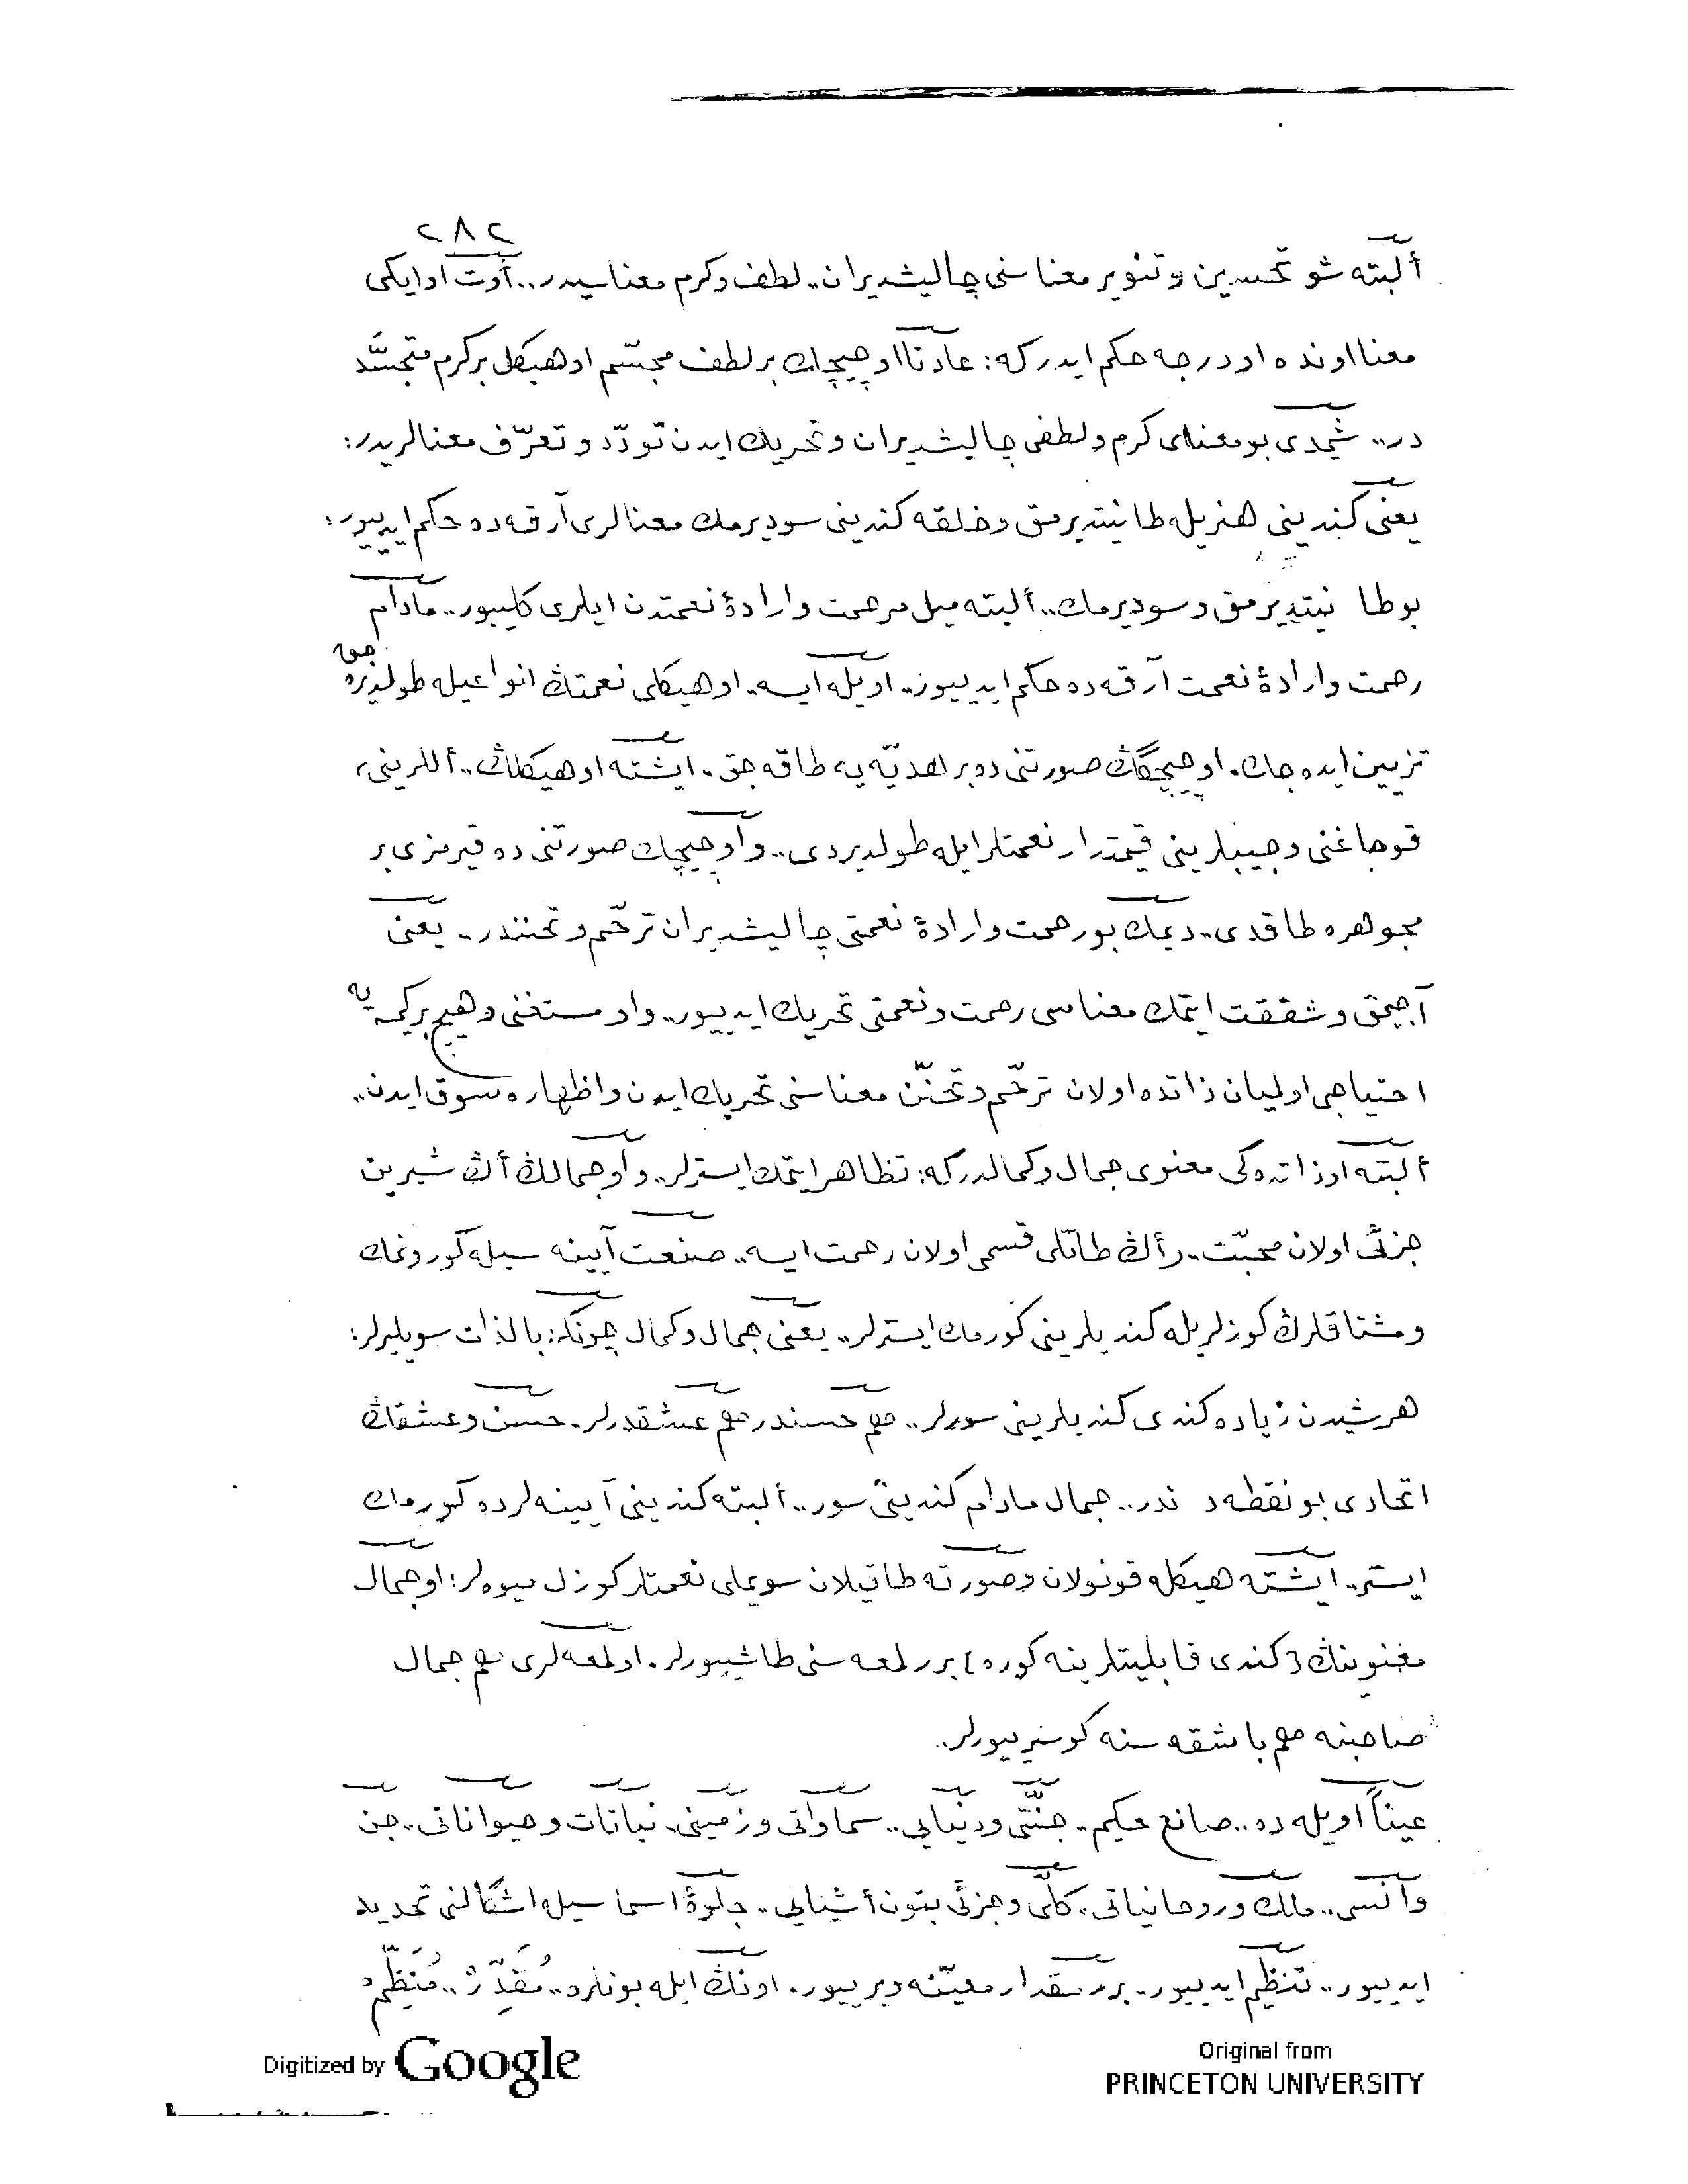 ٢٨٢
ألبته شو تحسین و تنویر معناسنی چالیشدیران.. لطف و كرم معناسیدر.. أوت او ایكی
معنا اونده او درجه حكم ایدر كه: عادتا او چیچك بر لطف مجسّم او هیكل بر كرم متجسّد
در.. شیمدی بو معنای كرم و لطفی چالیشدیران و تحریك ایدن تودّد و تعرّف معنالریدر:
یعنی كندینی هنریله طانیتدیرمق و خلقه كندینی سودیرمك معنالری آرقه ده حكم ایدییور:
بو طانیتدیرمق و سودیرمك.. ألبته میل مرحمت و ارادۀ نعمتدن ایلری كلییور.. مادام
رحمت و ارادۀ نعمت آرقه ده حكم ایدییور.. اویله ایسه.. او هیكلی نعمتڭ انواعیله طولدیره جق
تزیین ایده جك. او چیچگڭ صورتنی ده بر هدیّه یه طاقه جق. ایشته او هیكلڭ.. أللرینی،
قوجاغنی و جیبلرینی قیمتدار نعمتلر ایله طولدیردی.. و او چیچك صورتنی ده قیرمزی بر
مجوهره طاقدی.. دیمك بو رحمت و ارادۀ نعمتی چالیشدیران ترحّم و تحنندر.. یعنی
آجیمق و شفقت ایتمك معناسی رحمت و نعمتی تحریك ایدییور.. و او مستغنی و هیچ بر كیمسه یه
احتیاجی اولمیان ذاتده اولان ترحّم و تحنّن معناسنی تحریك ایدن و اظهاره سوق ایدن..
ألبته او ذاتده كی معنوی جمال و كمالدر كه: تظاهر ایتمك ایسترلر.. و او جمالڭ أڭ شیرین
جزئی اولان محبّت.. و أڭ طاتلی قسمی اولان رحمت ایسه.. صنعت آیینه سیله كورونمك
و مشتاقلرڭ كوزلریله كندیلرینی كورمك ایسترلر.. یعنی جمال و كمال چونكه: بالذات سویلیرلر:
هر شیدن زیاده كندی كندیلرینی سورلر.. هم حسندر هم عشقدرلر. حسن و عشقڭ
اتحادی بو نقطه دندر.. جمال مادام كندینی سور.. ألبته كندینی آیینه لرده كورمك
ایستر.. ایشته هیكله قونولان و صورته طاقیلان سویملی نعمتلر كوزل میوه لر: او جمال
معنوینڭ (كندی قابلیتلرینه كوره) برر لمعه سنی طاشییورلر. او لمعه لری هم جمال
صاحبنه هم باشقه سنه كوستریيورلر.
عیناً اویله ده.. صانع حكیم. جنّتی و دنیایی.. سماواتی و زمینی. نباتات و حیواناتی.. جن
و انسی.. ملك و روحانیاتی. كلّی و جزئی بتون أشیایی.. جلوۀ اسماسیله اشكالنی تحدید
ایدییور.. تنظیم ایدییور.. برر مقدار معیّنه ویرییور. اونڭ ایله بونلره.. مُقَدِّرْ.. مُنَظِّمْ
Digitized by Google
Original from
PRINCETON UNIVERSITY